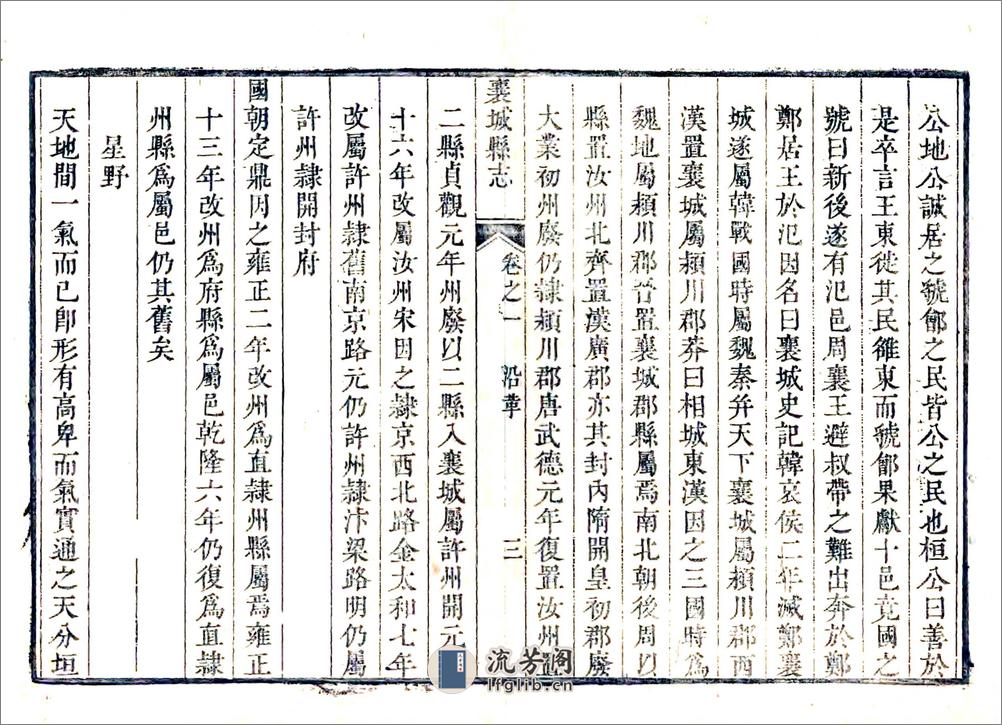 公地公誠居之虢鄶之民皆公之民也桓公曰善於
是卒言王東徙其民雒東而虢鄶果獻十邑竟國之
號曰新後遂有氾邑周襄王避叔帶之難出奔於鄭
鄭居王於氾因名曰襄城史記韓哀侯二年滅鄭襄
城遂屬韓戰國時屬魏秦并天下襄城屬潁川郡西
漢置襄城屬潁川郡莽曰相城東漢因之三國時為
魏地屬潁川郡晉置襄城郡縣屬焉南北朝後周以
縣置汝州北齊置漢廣郡亦其封內隋開皇初郡廢
大業初州廢仍隸潁川郡唐武德元年復置汝州
襄城縣志
卷之一 沿革 三
二縣貞觀元年州廢以二縣入襄城屬許州開元二
十六年改屬汝州宋因之隸京西北路金太和七年
改屬許州隸舊南京路元仍許州隸汴梁路明仍屬
許州隸開封府
國朝定鼎因之雍正二年改州為直隸州縣屬焉雍正
十三年改州為府縣為屬邑乾隆六年仍復為直隸
州縣為屬邑仍其舊矣
星野
天地間一氣而已卽形有高卑而氣實通之天分垣
流芳阁
lfglib.cn